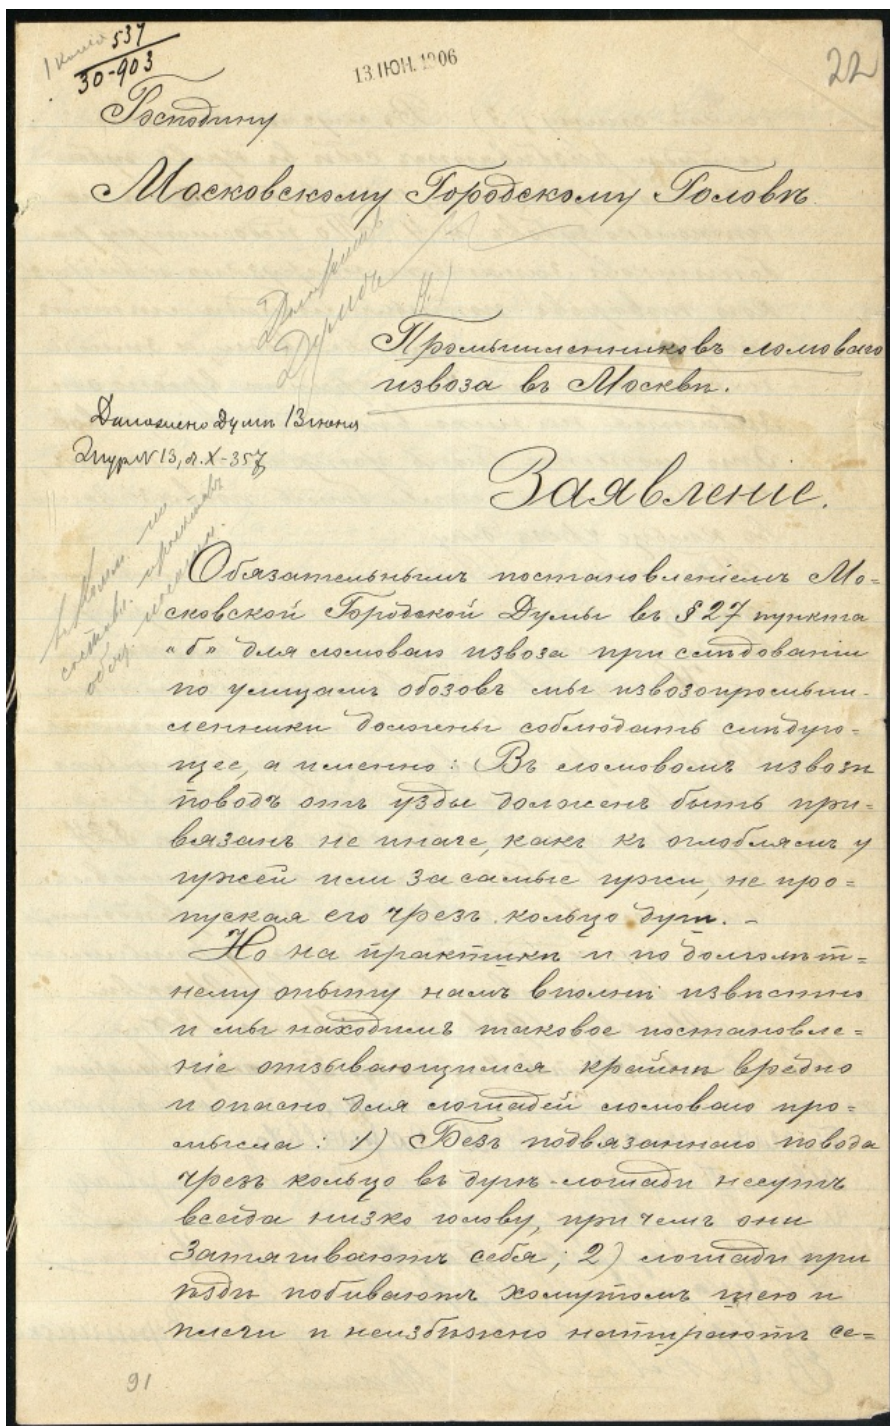 1 копія 537
30-903
13.ІЮН.1906
22
Господину
Московскому Городскому Головѣ
Промышленниковъ ломоваго
извоза въ Москвѣ.
Доложено Думѣ 13 іюня
Жур № 13, ст. X-357
Заявленіе.
Обязательнымъ постановленіемъ Мо=
сковской Городской Думы въ § 27 пункта
"б" для ломоваго извоза при слѣдованіи
по улицамъ обозовъ мы извозопромыш-
ленники должны соблюдать слѣдую=
щее, а именно: Въ ломовомъ извозѣ
поводъ отъ узды долженъ быть при=
вязанъ не иначе, какъ къ оглоблямъ у
гужей или за самые гужи, не про=
пуская его чрезъ кольцо дуги. –
Но на практикѣ и по долголѣт=
нему опыту намъ вполнѣ извѣстно
и мы находимъ таковое постановле=
ніе отзывающимся крайнѣ вредно
и опасно для лошадей ломоваго про=
мысла: 1) Безъ подвязаннаго повода
чрезъ кольцо въ дугѣ - лошади несутъ
всегда низко голову, при чемъ они
затягиваютъ себя; 2) лошади при
ѣздѣ побиваютъ хомутомъ шею и
плечи и неизбѣжно натираютъ се=
91